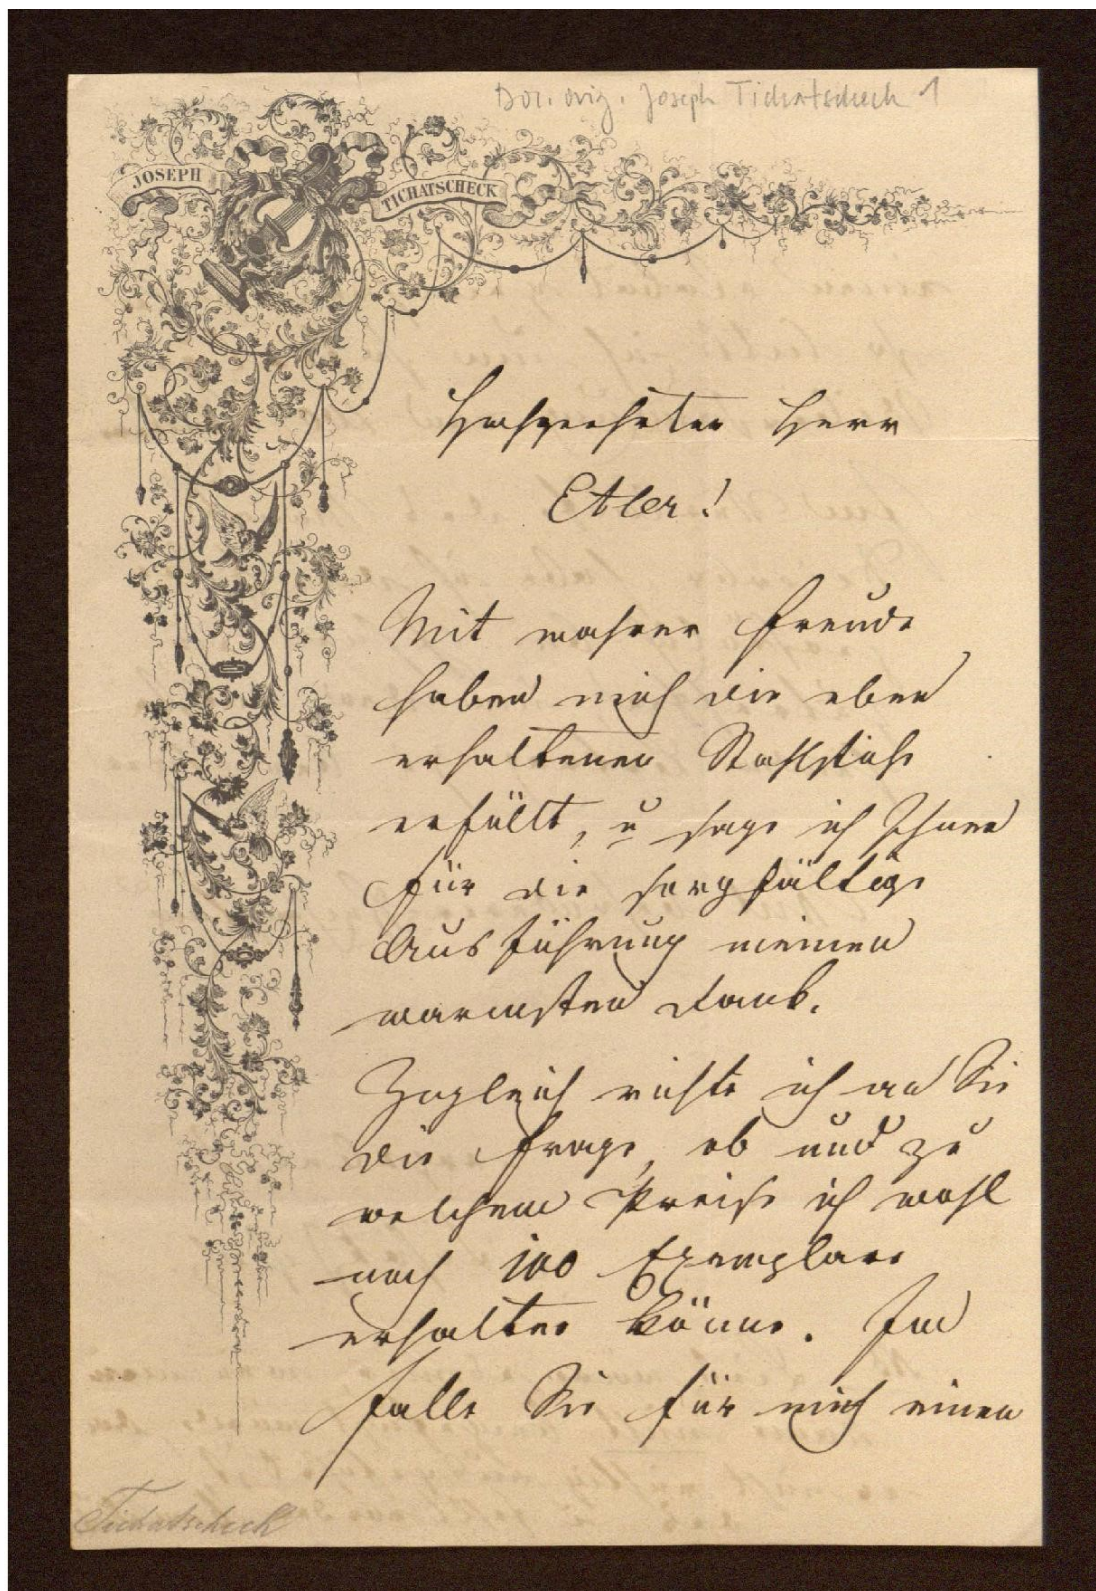 Doc. orig. Joseph Tichatscheck 1
JOSEPH
TICHATSCHECK
Hochverehrter Herr
Etler!
Mit wahrer Freude
haben mich die eben
erhaltenen Stahlstiche
erfüllt, u sage ich Ihnen
für die sorgfältige
Ausführung meinen
warmsten Dank.
Zugleich richte ich an Sie
die Frage, ob und zu
welchem Preise ich wohl
noch 100 Exemplare
erhalten könne. Im
Falle Sie für mich einen
Tichatscheck